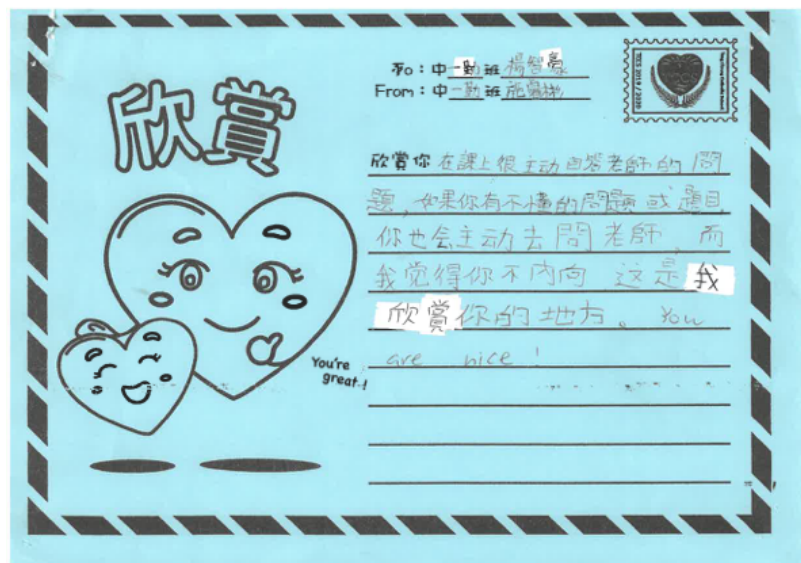 To：中一勤班 楊智豪
From：中一勤班
欣賞
TCES 2019 / 2020
欣賞你 在課上很主动回答老師的 問
題，如果你有不懂的問題 或 題目
你也会主动去問老師，而
我觉得你不内向 这是我
欣賞你的地方。You
are nice！
You're
great！